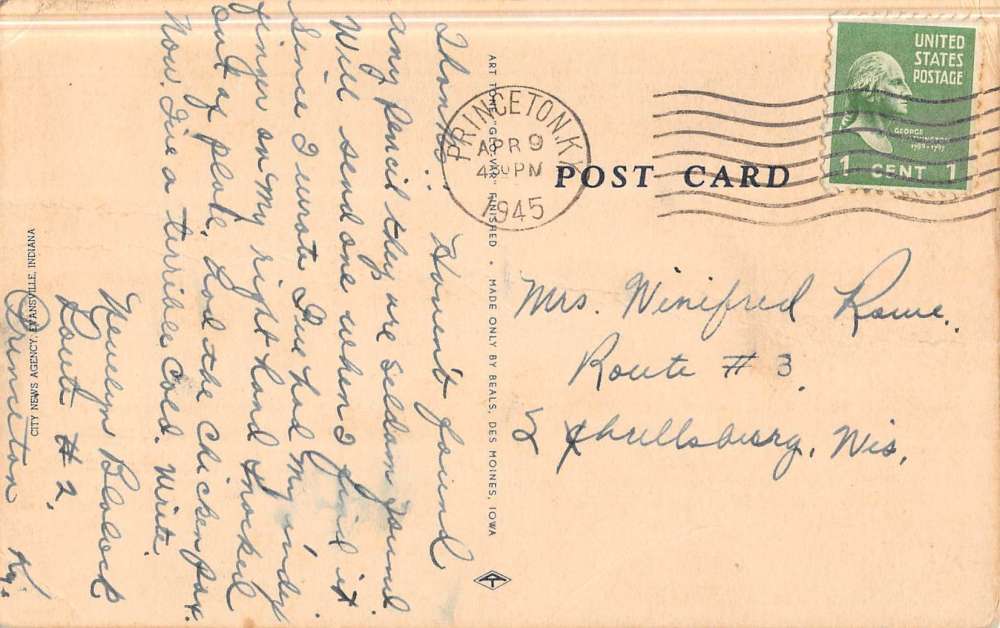 Thanks: Haven't found
any pencil they are seldom found
Will send one when I find it
Since I wrote I've had my index
finger on my right hand knocked
out of place, had the chickenpox.
Now I've a terrible cold. Write
Route # 2,
Princeton Ky.
CITY NEWS AGENCY, EVANSVILLE, INDIANA
ART TONE "GLO-VAR" FINISHED • MADE ONLY BY BEALS, DES MOINES, IOWA
PRINCETON, KY
APR 9
4 PM
1945
POST CARD
UNITED
STATES
POSTAGE
GEORGE
WASHINGTON
1 CENT 1
Mrs. Winifred Rowe.
Route # 3.
Schullsburg, Wis.